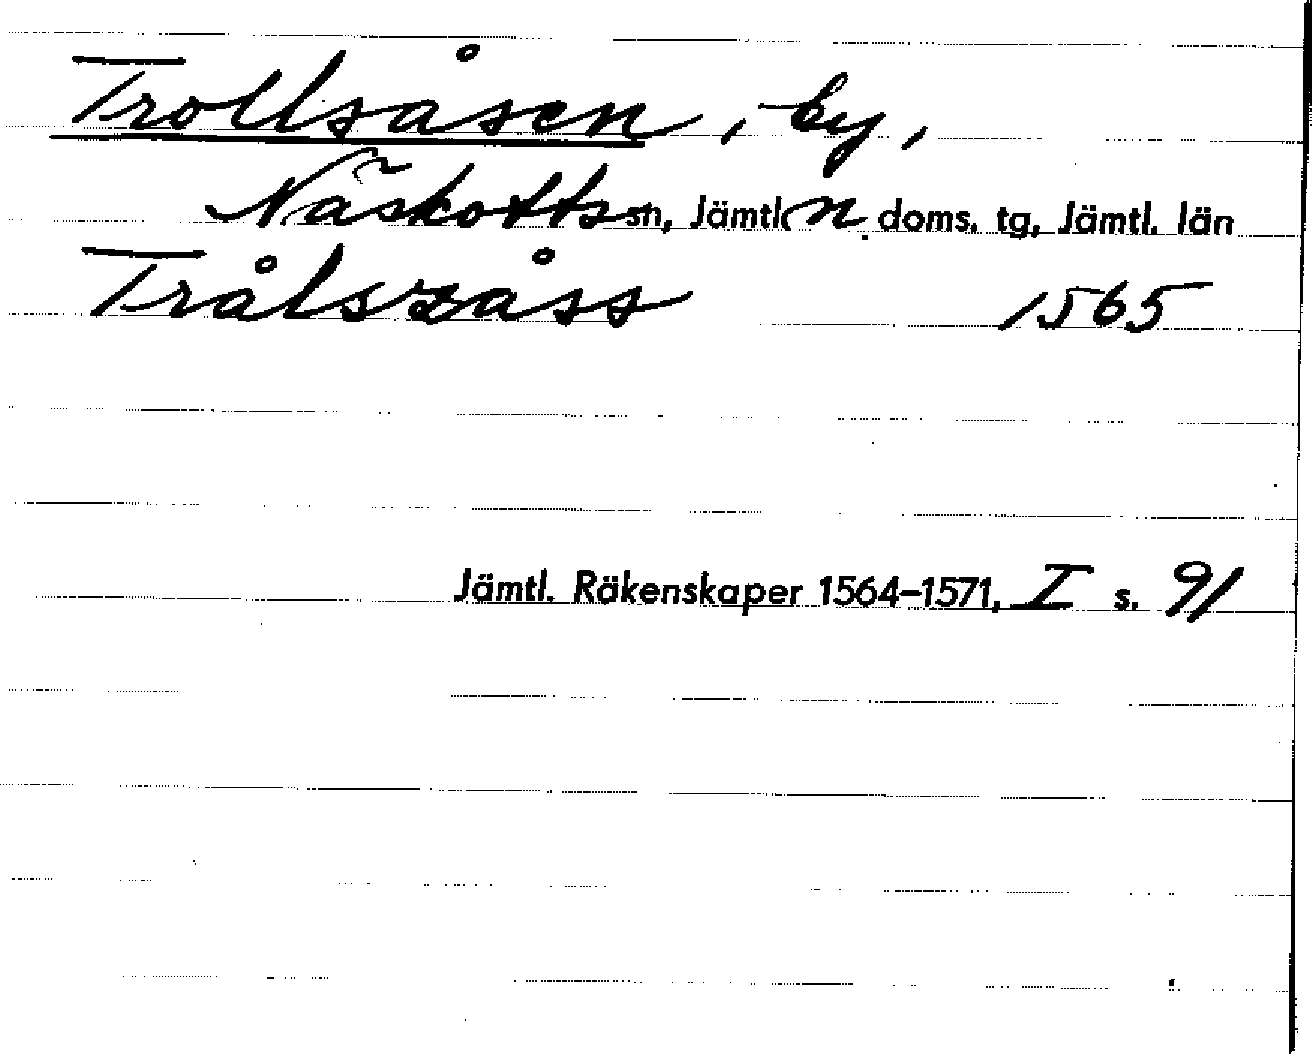 Trollsåsen, by,
Näskotts sn, Jämtl. n. doms. tg, Jämtl. län
Trålszåss 1565
Jämtl. Räkenskaper 1564–1571, I s. 91